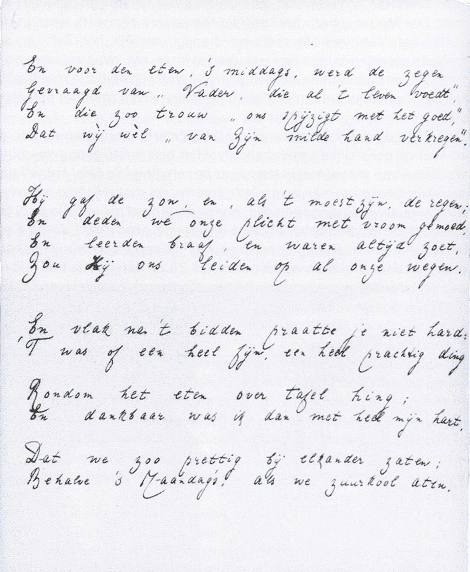 En voor den eten, 's middags, werd de zegen
Gevraagd van „ Vader, die al 't leven voedt"
En die zoo trouw „ ons spijzigt met het goed,"
Dat wij wèl „ van Zijn milde hand verkregen".
Hij gaf de zon, en, als 't moest zijn, de regen;
En deden we onze plicht met vroom gemoed,
En leerden braaf, en waren altijd zoet,
Zou Hij ons leiden op al onze wegen.
En vlak na 't bidden praatte je niet hard:
'T was of een heel fijn, een heel prachtig ding
Rondom het eten over tafel hing;
En dankbaar was ik dan met heel mijn hart,
Dat we zoo prettig bij elkander zaten;
Behalve 's Maandags, als we zuurkool aten.